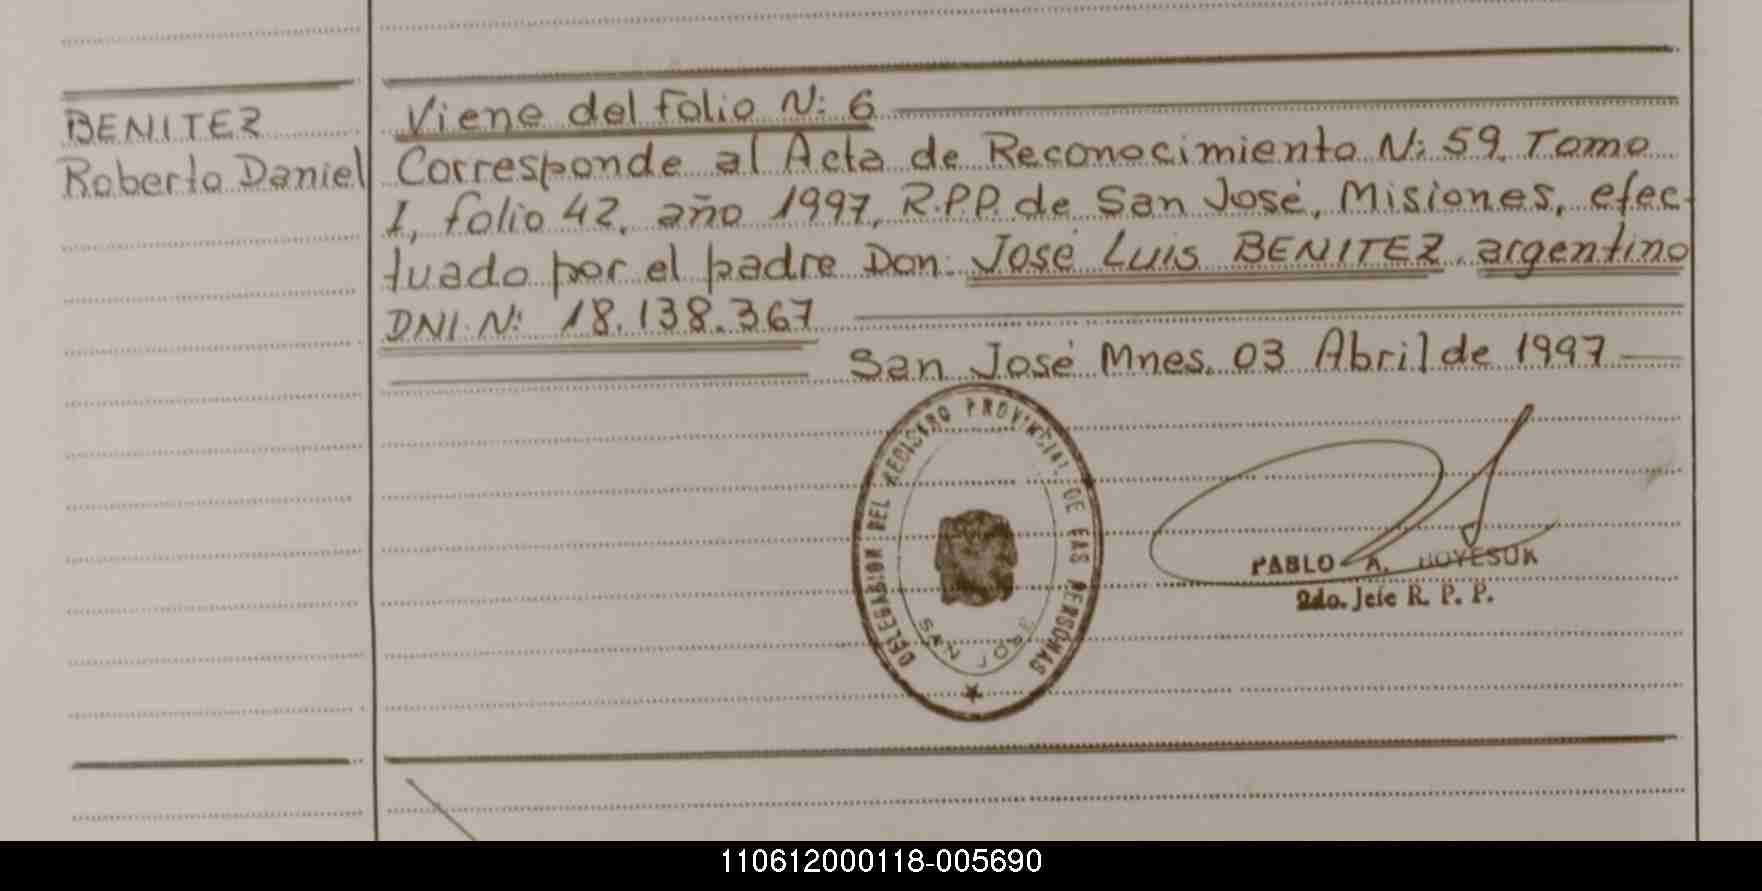 BENITEZ
Roberto Daniel
Viene del folio N: 6
Corresponde al Acta de Reconocimiento N: 59, Tomo
I, folio 42, año 1997, R.P.P. de San José, Misiones, efec-
tuado por el padre Don: José Luis BENITEZ, argentino
DNI. N: 18.138.367
San José Mnes. 03 Abril de 1997
DELEGACION DEL REGISTRO PROVINCIAL DE LAS PERSONAS
SAN JOSE
PABLO A.
2do. Jefe R. P. P.
110612000118-005690